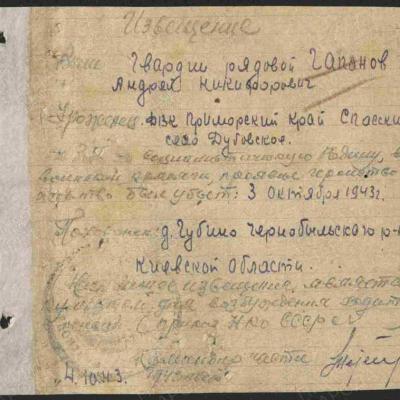 Извещение
Ваш Гвардии рядовой Гапонов
Андрей Никифорович
Уроженец: ДВК Приморский край Спасский
село Дубовское.
в бою за социалистическую Родину, в
воинской присяге, проявив геройство
мужество был убит: 3 октября 1943г.
Похоронен: д. Губино Чернобыльского р-н
Киевской области.
Настоящее извещение является
документом для возбуждения ходат
пенсии (приказ НКО СССР №
Командир части
4.10.43.